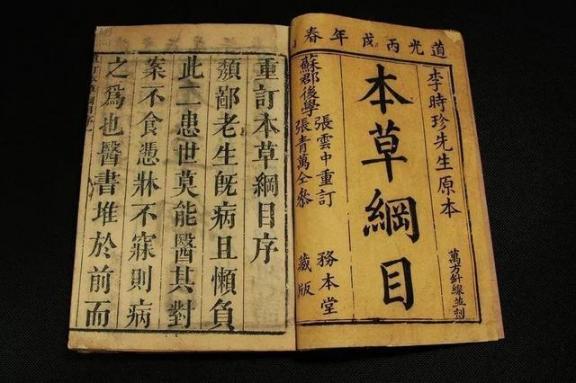 道光丙戌年春
李時珍先生原本
萬方針線並刻
本草綱目
張雲中重訂
蘇郡後學張青萬仝參
務本堂
藏版
重訂本草綱目序
鄙老生既病且懶負
此二患世莫能醫其對
案不食憑牀不寐則病
之爲也醫書堆於前而